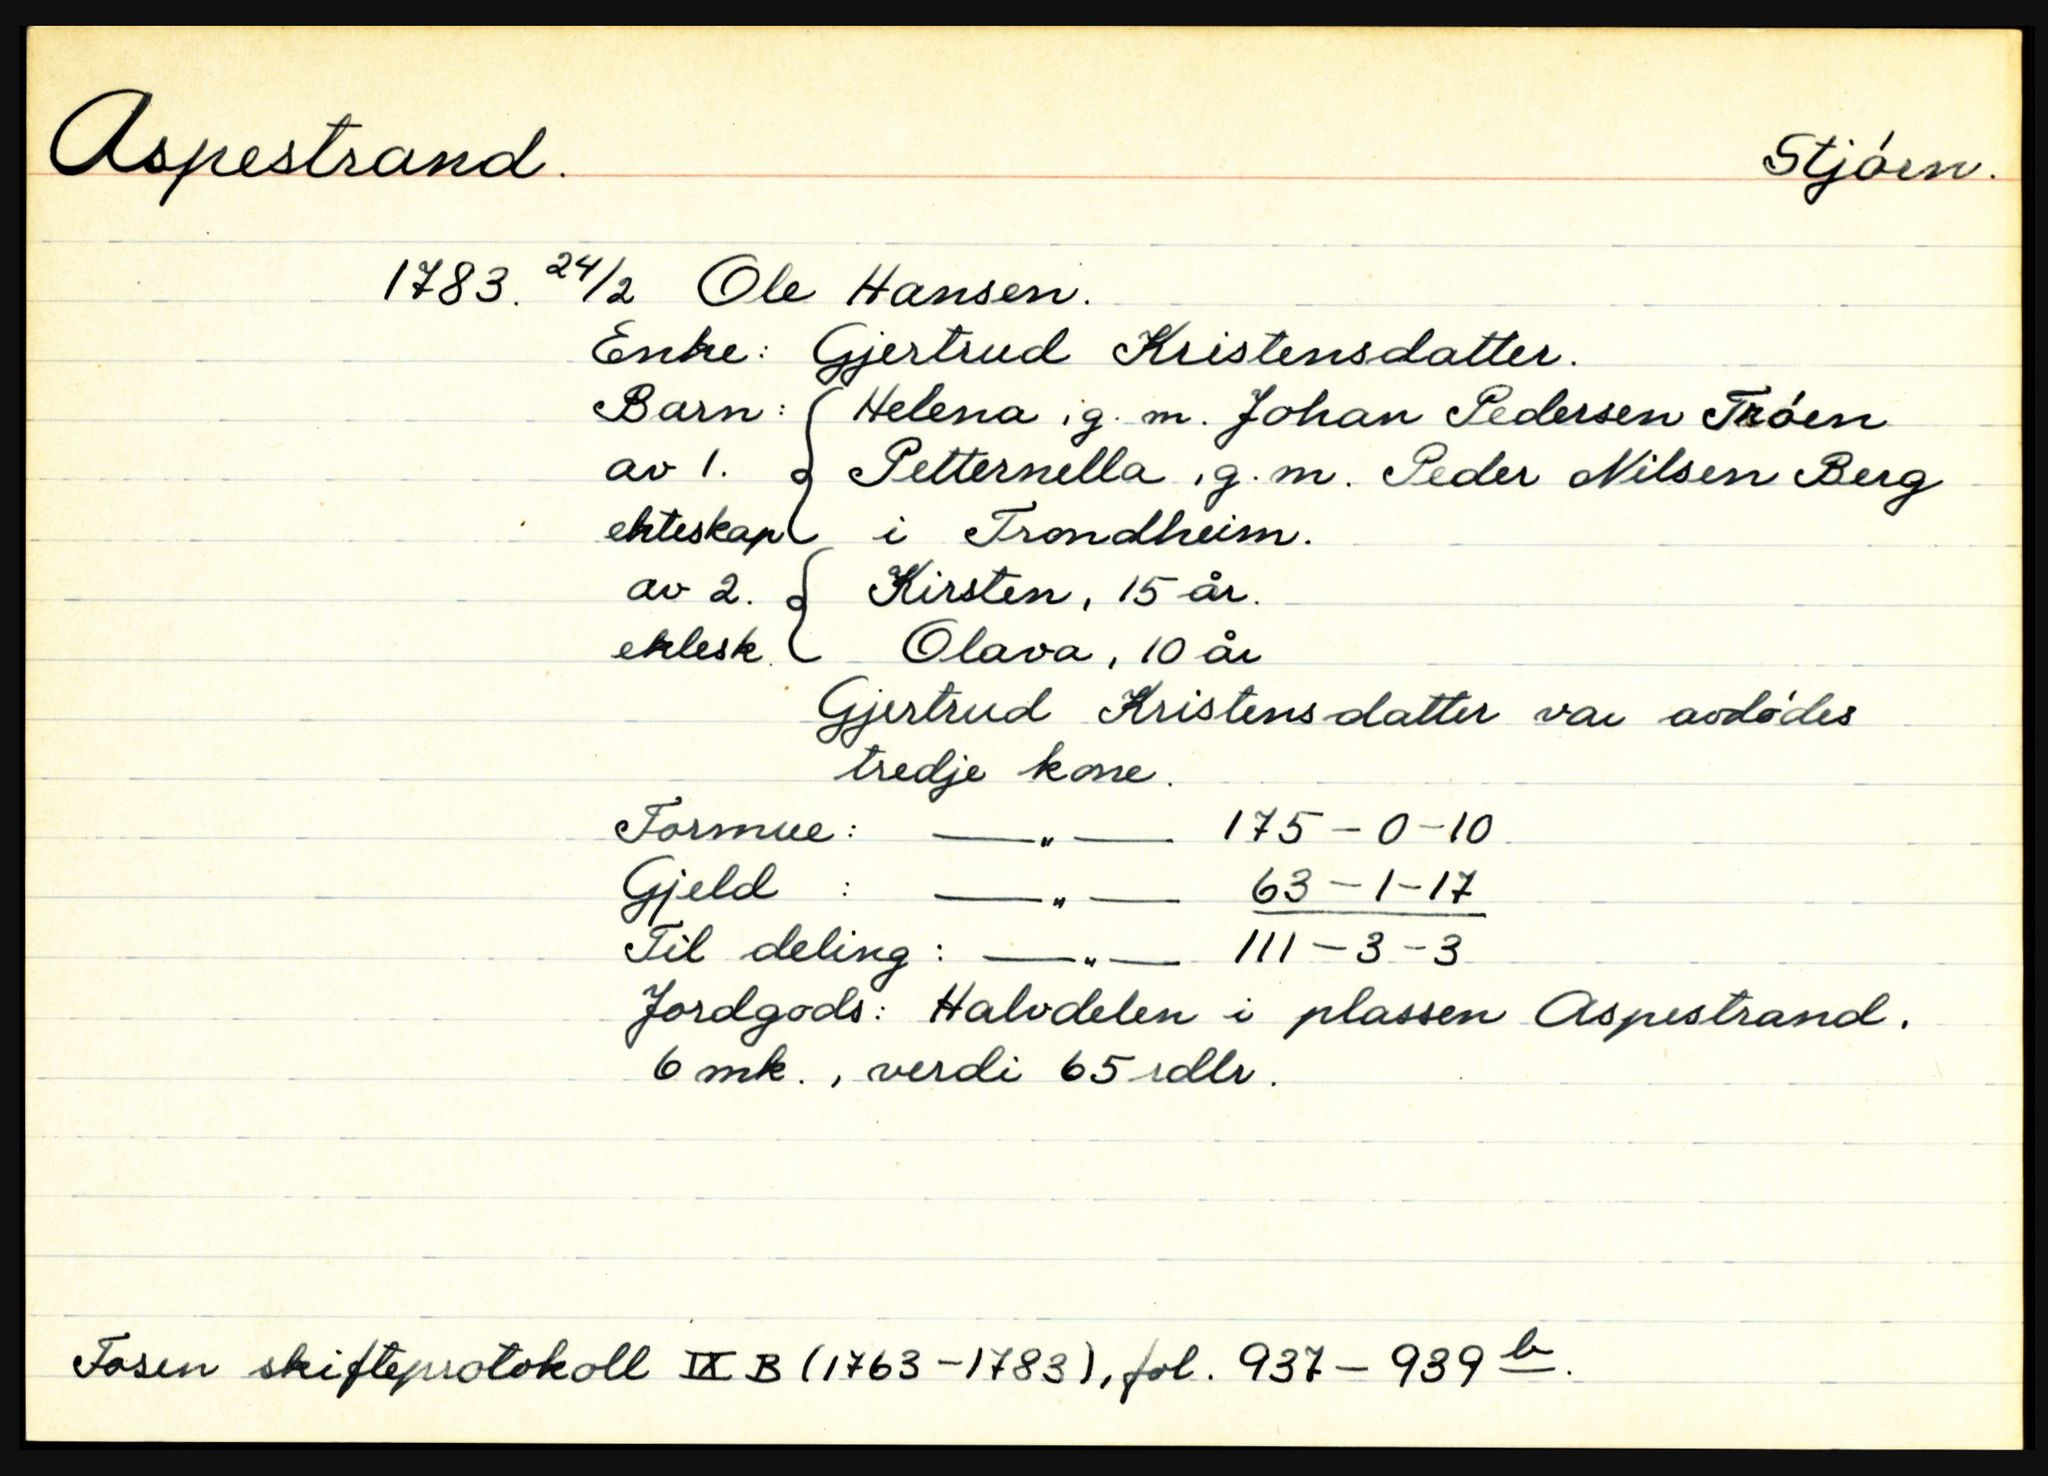 Aspestrand. Stjórn.
1783. 24/2 Ole Hansen.
Enke: Gjertrud Kristensdatter.
Barn: { Helena, g. m. Johan Pedersen Tróen
av 1. Petternella, g. m. Peder Nilsen Berg
ekteskap i Trondheim.
av 2. { Kirsten, 15 år.
ektesk. Olava, 10 år
Gjertrud Kristensdatter var avdódes
tredje kone.
Formue: —„— 175 – 0 – 10
Gjeld : —„— 63 – 1 – 17
Til deling: —„— 111 – 3 – 3
Jordgods: Halvdelen i plassen Aspestrand,
6 mk., verdi 65 rdlr.
Fosen skifteprotokoll IX B (1763–1783), fol. 937 – 939 b.